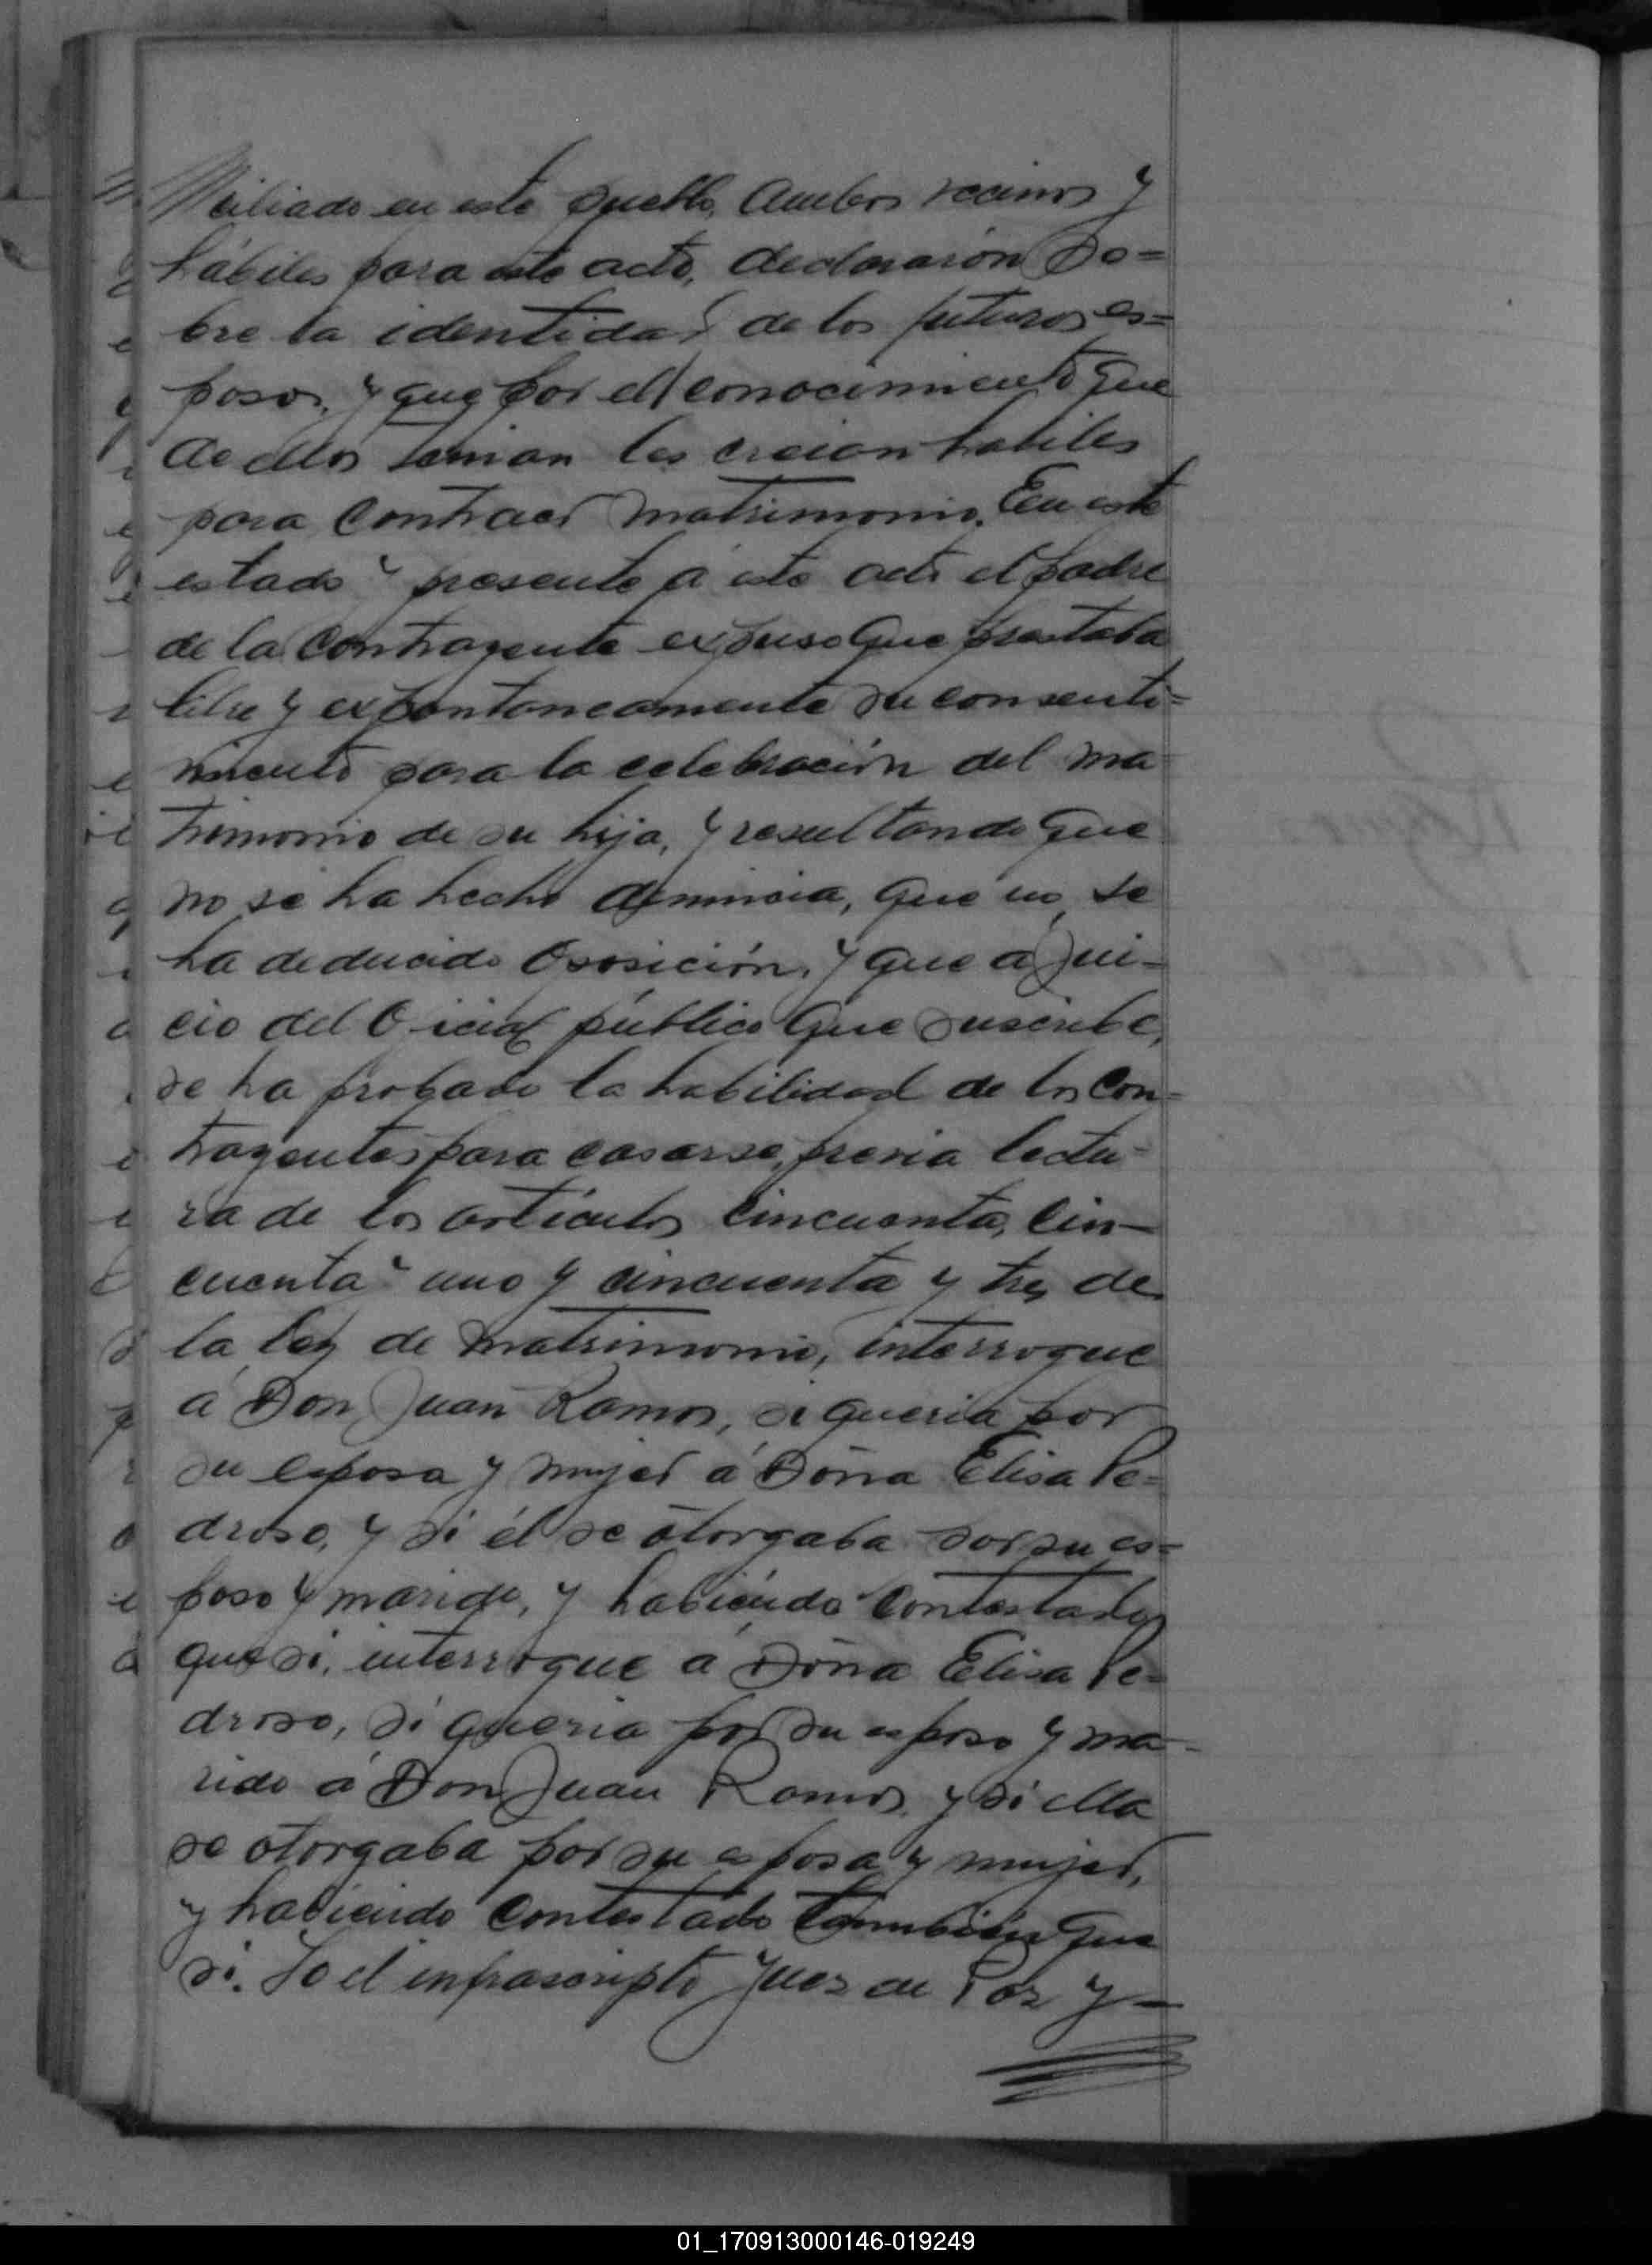 miciliado en este pueblo. Ambos vecinos y
hábiles para este acto, declararon so=
bre la identidad de los futuros es=
posos, y que por el conocimiento que
de ellos tenian los creian habiles
para contraer matrimonio. En este
estado y presente á este acto el padre
de la contrayente expuso que prestaba
libre y expontaneamente su consenti=
miento para la celebración del ma
trimonio de su hija, y resultando que
no se ha hecho denuncia, que no se
ha deducido oposición, y que a jui-
cio del Oficial público que suscribe,
se ha probado la habilidad de los con=
trayentes para casarse, previa lectu-
ra de los artículos cincuenta, cin-
cuenta y uno y cincuenta y tres de
la ley de matrimonio, interrogue
á Don Juan Ramos, si queria por
su esposa y mujer á Doña Elisa Pe=
droso, y si él se otorgaba por su es=
poso y marido, y habiendo contestado
que si, interrogue á Doña Elisa Pe-
droso, si queria por su esposo y ma-
rido á Don Juan Ramos y si ella
se otorgaba por su esposa y mujer,
y habiendo contestado tambien que
si. Yo el infrascripto Juez de Paz y—
01_170913000146-019249